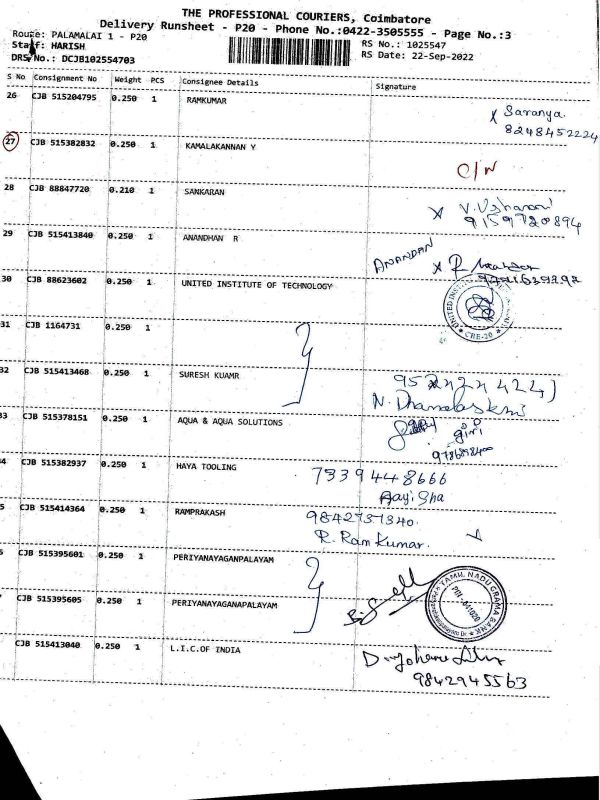 THE PROFESSIONAL COURIERS, Coimbatore
Delivery Runsheet - P20 - Phone No.:0422-3505555 - Page No.:3
Route: PALAMALAI 1 - P20
RS No.: 1025547
Staff: HARISH
RS Date: 22-Sep-2022
DRS No.: DCJB102554703
S No Consignment No Weight PCS Consignee Details Signature
26 CJB 515204795 0.250 1 RAMKUMAR
Saranya
8248452224
27 CJB 515382832 0.250 1 KAMALAKANNAN Y
C/N
28 CJB 88847720 0.210 1 SANKARAN
9159720894
29 CJB 515413840 0.250 1 ANANDHAN R
ANANDAN
30 CJB 88623602 0.250 1 UNITED INSTITUTE OF TECHNOLOGY
CBE-20
31 CJB 1164731 0.250 1
32 CJB 515413468 0.250 1 SURESH KUAMR
33 CJB 515378151 0.250 1 AQUA & AQUA SOLUTIONS
giri
4 CJB 515382937 0.250 1 HAYA TOOLING
7339448666
Aayisha
5 CJB 515414364 0.250 1 RAMPRAKASH
9842737340
R. Ram Kumar.
6 CJB 515395601 0.250 1 PERIYANAYAGANPALAYAM
TAMIL NADU GRAMA BANK
7 CJB 515395605 0.250 1 PERIYANAYAGANAPALAYAM
CJB 515413040 0.250 1 L.I.C.OF INDIA
9842945563